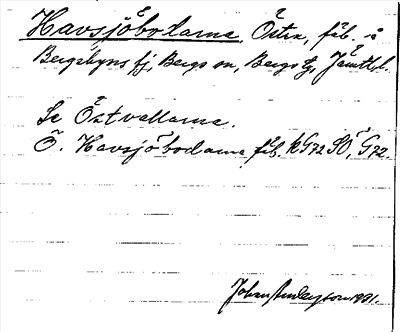 Havsjöbodarna, Östra, fäb. å
Bergsbyns fj, Bergs sn, Bergs tg, Jämtl.
Se Östvallarna.
Ö. Havsjöbodarna fäb. KG72 SO, G72.
Johan Andersson 1921.